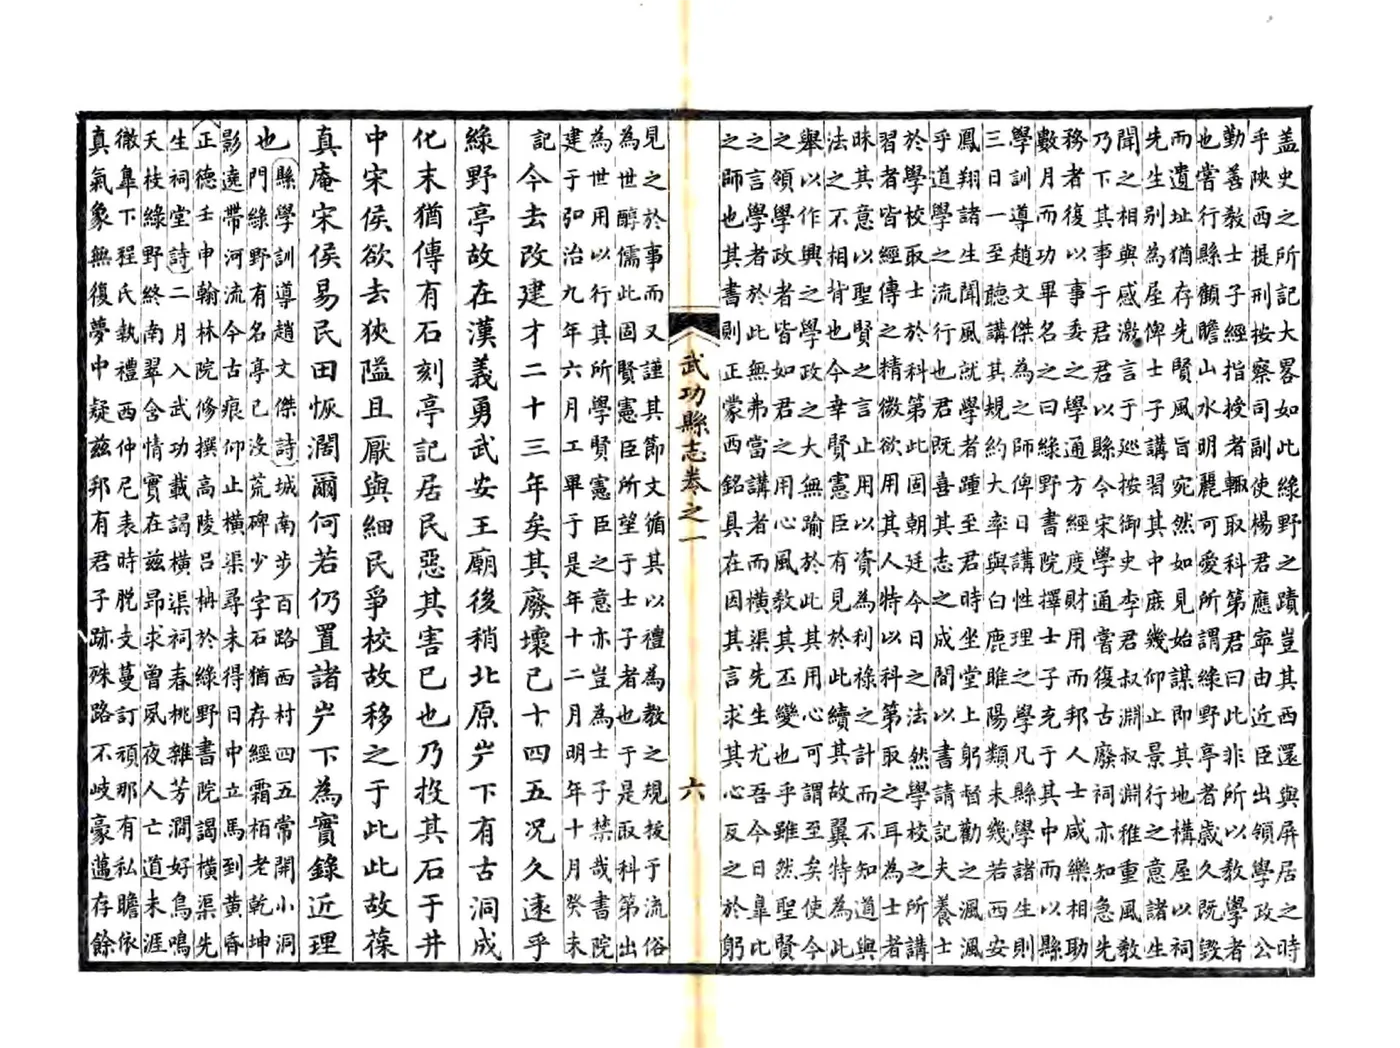 盖史之所記大畧如此綠野之蹟豈其西還與屏居之時
乎陝西提刑按察司副使楊君應寧由近臣出領學政公
勤善教士子經指授者輒取科第君曰此非所以教學者
也嘗行縣顧瞻山水明麗可愛所謂綠野亭者歲久既毀
而遺址猶存先賢風旨宛然如見始謀即其地構屋以祠
先生别為屋俾士子講習其中庶幾仰止景行之意諸生
聞之相與感激言于巡按御史李君叔淵叔淵雅重風教
乃下其事于君君以縣令宋學通嘗復古廢祠亦知急先
務者復以事委之學通方經度財用而邦人士咸樂相助
數月而功畢名之曰綠野書院擇士子充于其中而以縣
學訓導趙文傑為之師俾日講性理之學凡縣學諸生則
三日一至聽講其規約大率與白鹿睢陽類未幾若西安
鳳翔諸生聞風就學者踵至君時坐堂上躬督勸之渢渢
乎道學之流行也君既喜其志之成間以書請記夫養士
於學校取士於科第此固朝廷今日之法然學校之所講
習者皆經傳之精微欲用其人特以科第取之耳為士者
昧其意以聖賢之言止用以資為利祿之計而不知道與
法之不相背也今幸賢憲臣有見於此續其故翼特為此
舉以作興之學政之大無踰於此其用心可謂至矣使今
之領學政者皆如君之用心風教其丕變也乎雖然聖賢
之言學者於此無弗當講者而橫渠先生尤吾今日臯比
之師也其書則正蒙西銘具在因其言求其心反之於躬
武功縣志卷之一 六
見之於事而又謹其節文循其以禮為教之規授于流俗
為世醇儒此固賢憲臣所望于士子者也于是取科第出
為世用以行其所學賢憲臣之意亦豈為士子禁哉書院
建于弘治九年六月工畢于是年十二月明年十月癸未
記今去改建才二十三年矣其廢壞已十四五况久遠乎
綠野亭故在漢義勇武安王廟後稍北原屵下有古洞成
化末猶傳有石刻亭記居民惡其害已也乃投其石于井
中宋侯欲去狹隘且厭與細民爭校故移之于此此故葆
真庵宋侯易民田恢濶爾何若仍置諸屵下為實錄近理
也縣學訓導趙文傑詩城南步百路西村四五常開小洞
門綠野有名亭已沒荒碑少字石猶存經霜柏老乾坤
影遶帶河流今古痕仰止橫渠尋未得日中立馬到黄昏
正德壬申翰林院修撰高陵呂柟於綠野書院謁橫渠先
生祠堂詩二月入武功載謁橫渠祠春桃雜芳澗好鳥鳴
天枝綠野終南翠含情實在兹昂求曽夙夜人亡道未涯
徵臯下程氏執禮西仲尼表時脱支蔓訂頑那有私瞻依
真氣象無復夢中疑兹邦有君子跡殊路不岐豪邁存餘